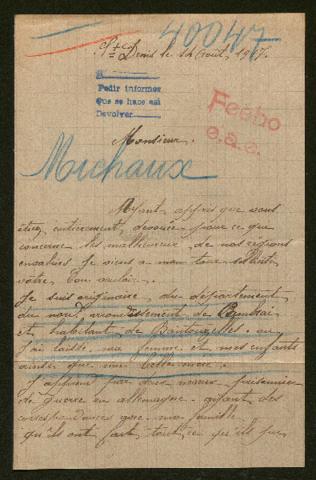 40047
St Denis le 14 Août, 1917.
A
Pedir informes
Que se hace así
Devolver
Fecho
e.a.e.
Monsieur.
Michaux
Ayant appris que vous
étiez entièrement dévoué pour ce que
concerne les malheureux de nos régions
envahies Je viens a mon tour solliciter
votre bon vouloir.
Je suis originaire du département
du nord, arrondissement de Cambrai
et habitant de Bantouzelles. ou
j'ai laissé ma femme et mes enfants
ainsi que ma belle mère.
J'apprens par deux prisonnier
de Guerre en allemagne. ayant des
correspondances avec ma famille
qu'ils ont fait tout ce qu'ils